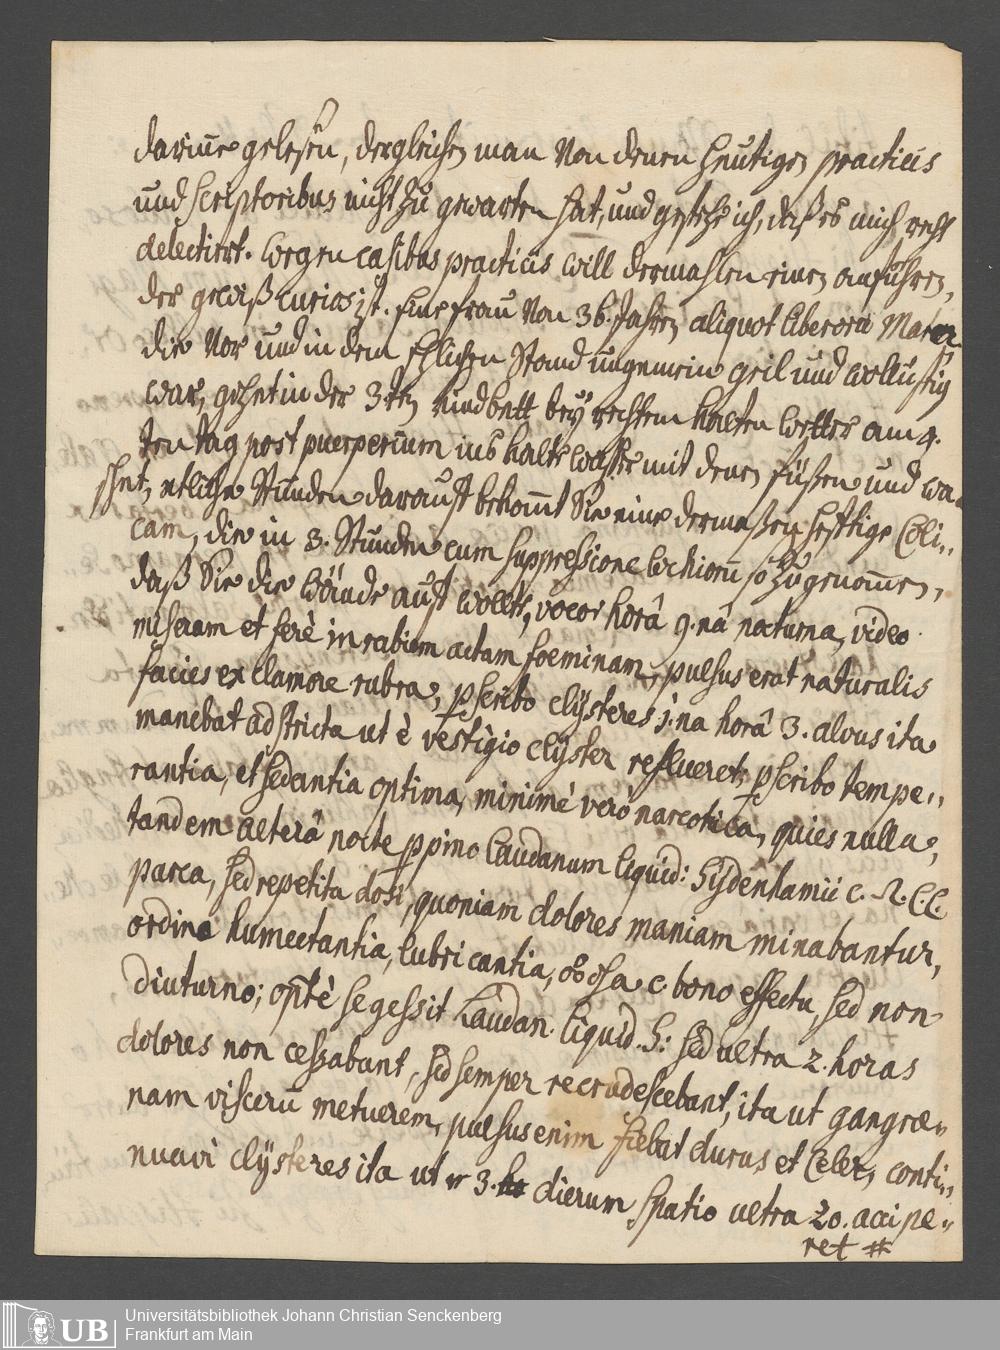 darinne gelesen, dergleichen man von denen heutigen practicis
und scriptoribus nicht zu gewarten hat, und gestehe ich, daß es mich recht
delectirt. wegen casibus practicis will dermahlen einen anführen,
der gewiß curios ist. Eine frau von 36. Jahren aliquot liberorū Mater
die vor und in dem ehlichen Stand ungemein geil und wollüstig
war, gehet in der 3.ten kindbett bey rechtem kalten wetter am 4.
ten tag post puerperium ins kalte wasser mit denen füßen und wa-
schet, etliche Stunden darauf bekom̄t Sie eine dermaßen hefftige Coli-,
cam, die in 3. Stunden cum suppressione lochiorū so zugenom̄en,
daß Sie die wände auf wollte, vocor horâ 9.nâ nocturna, video
miseram et ferè in rabiem actam foeminam, pulsus erat naturalis
facies ex clamore rubra, pscribo clysteres i.na horâ 3. alvus ita
manebat adstricta ut è vestigio clyster reflueret, pscribo tempe,,
rantia, et sedantia optima, minimè verò narcotica, quies nulla,
tandem alterâ nocte ppino Laudanum liquid: Sydenhamii c. C.C.
parca, sed repetita dosi, quoniam dolores maniam minabantur,
ordino humectantia, lubricantia, oleosa c. bono effectu, sed non
diuturno; optè se gessit Laudan. liquid. S: sed ultra 2. horas
dolores non cessabant, sed semper recrudescebant, ita ut gangrae,,
nam viscerū metuerem, pulsus enim fiebat durus et Celer, conti,,
nuavi clysteres ita ut 3. dierum spatio ultra 20. accipe,,
ret #
UB
Universitätsbibliothek Johann Christian Senckenberg
Frankfurt am Main